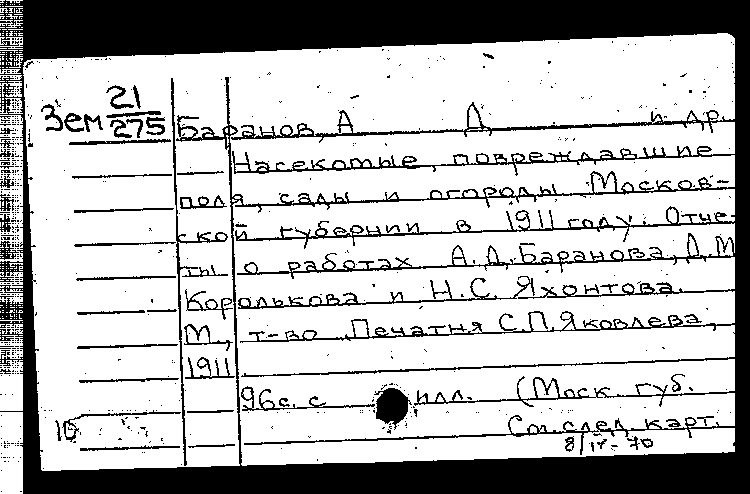 Зем 21/275
Баранов, А Д и др.
Насекомые, повреждавшие
поля, сады и огороды Москов-
ской губернии в 1911 году. Отче-
ты о работах А.Д. Баранова, Д.М
Королькова и Н.С. Яхонтова.
М., т-во Печатня С.П. Яковлева,
1911
96 с. с илл. (Моск. губ.
См. след. карт.
10
8/IV-70